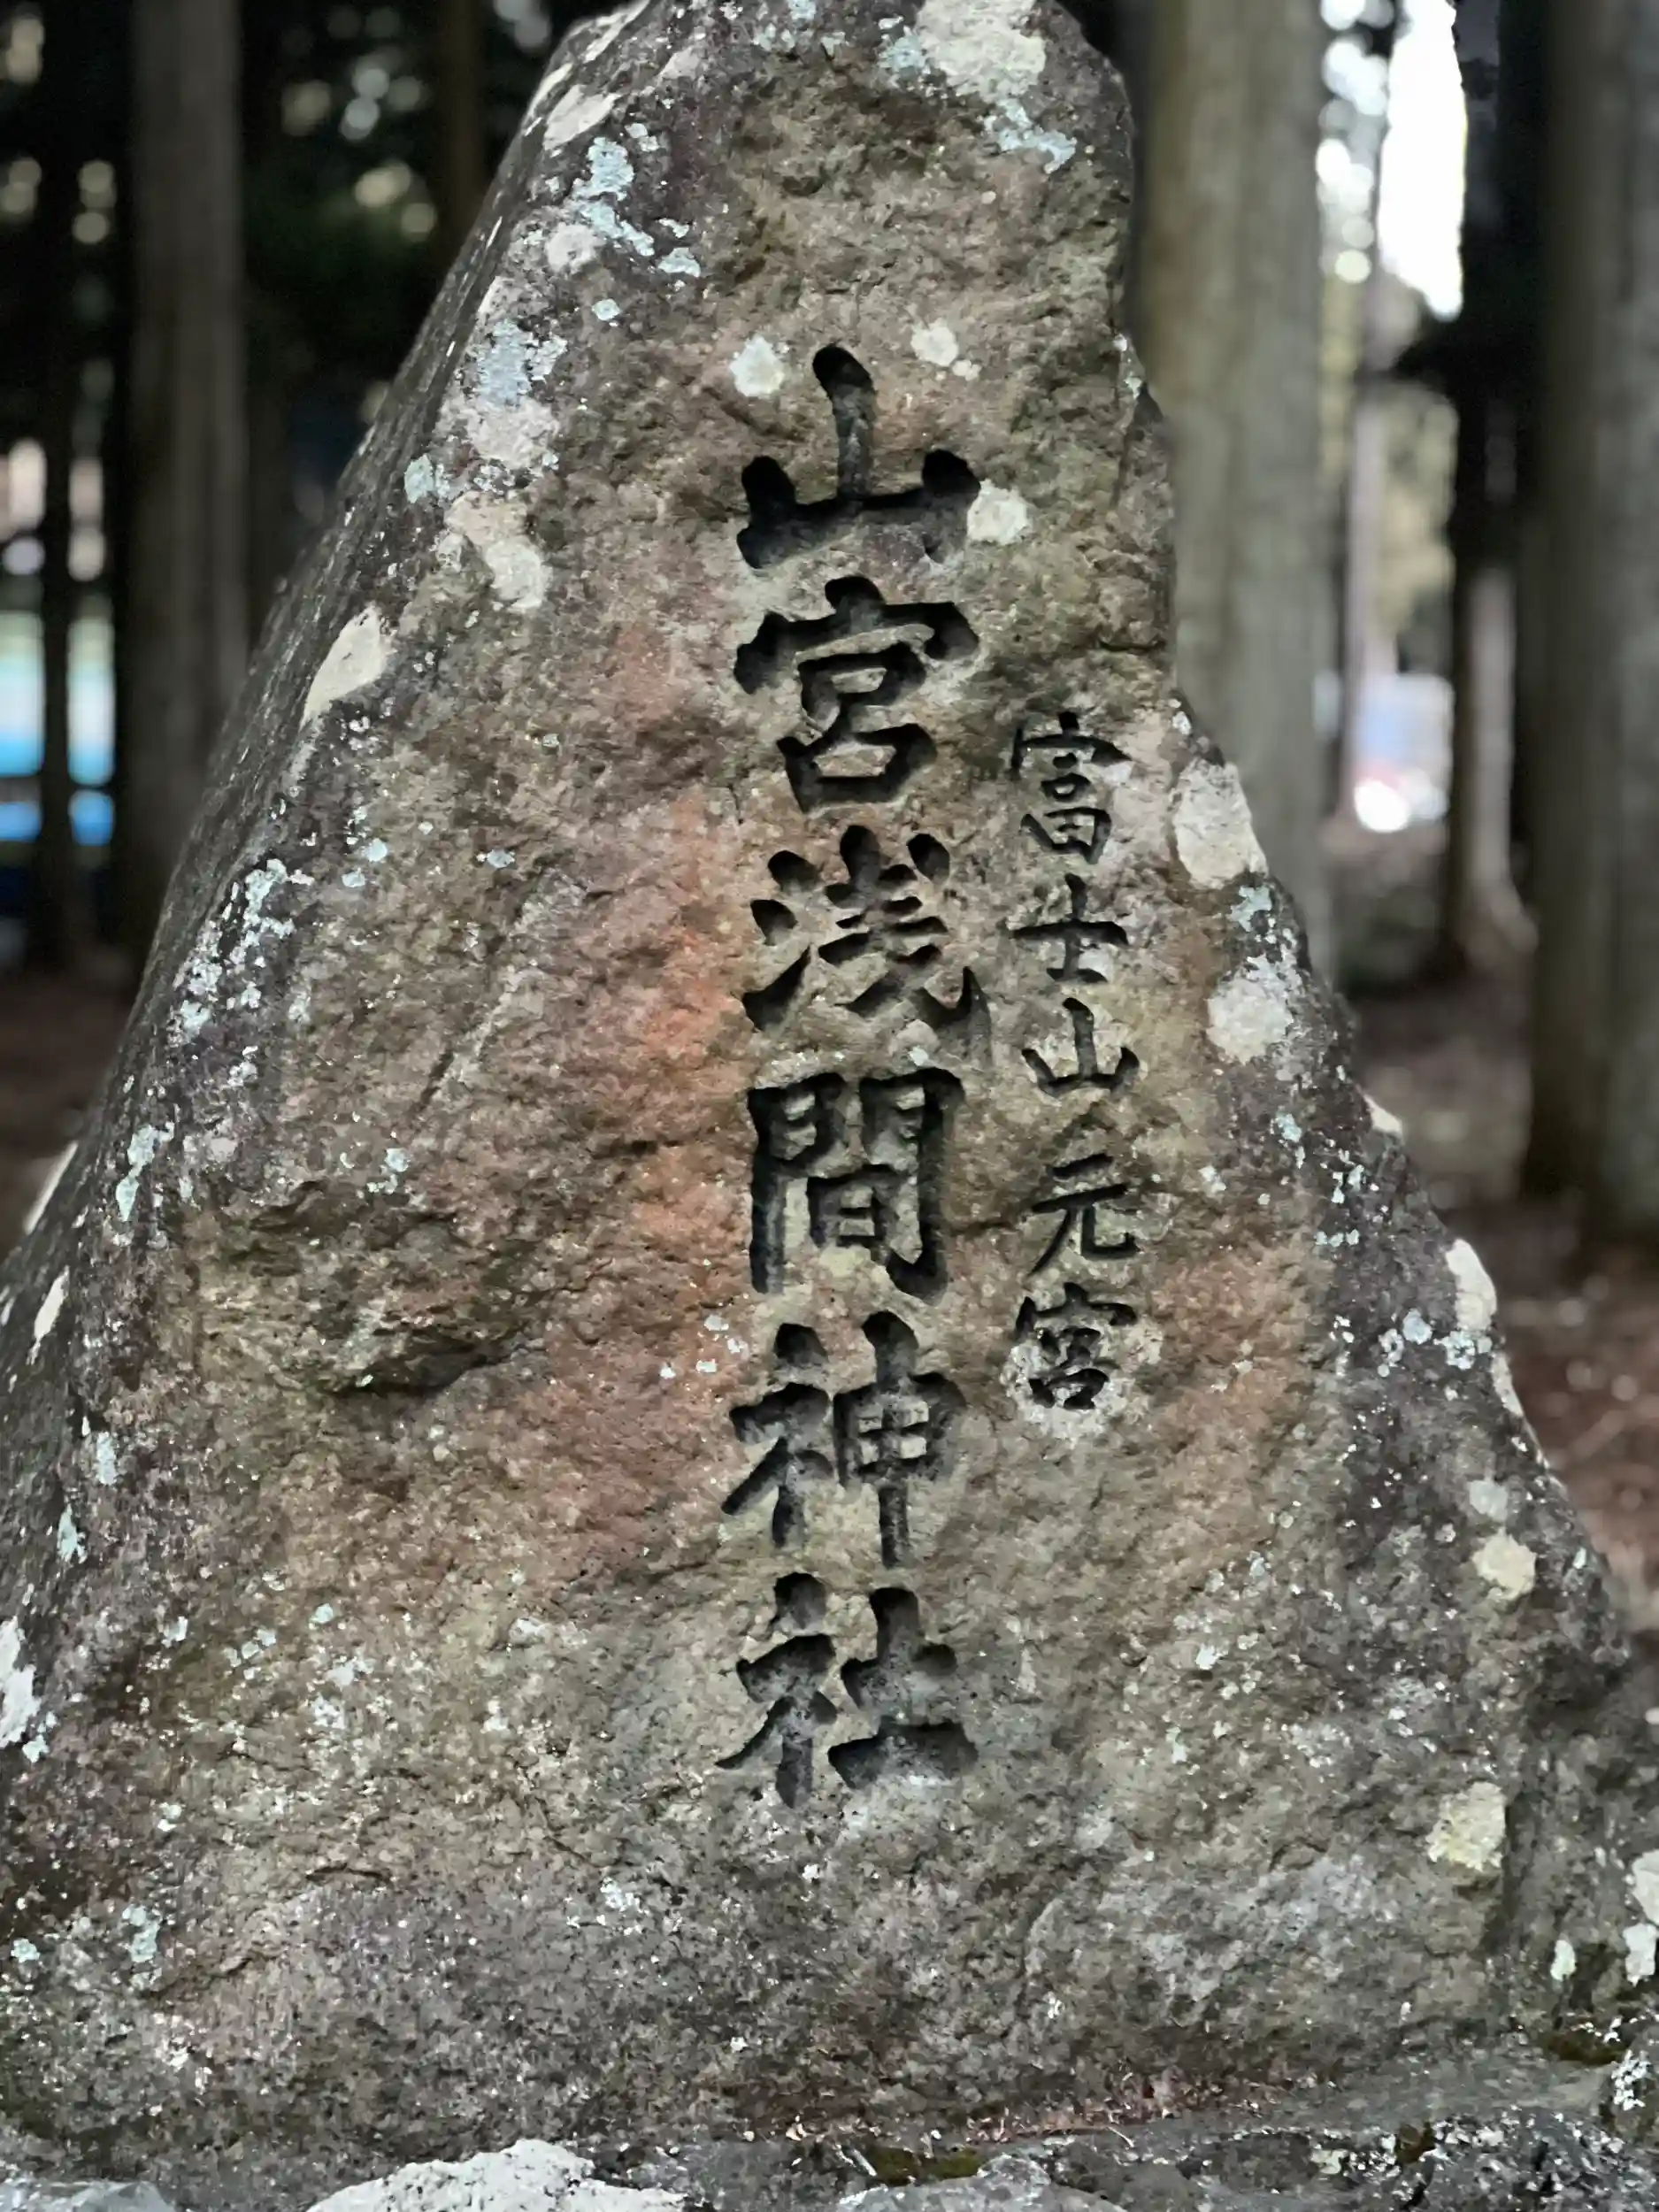 富士山元宮
山宮浅間神社